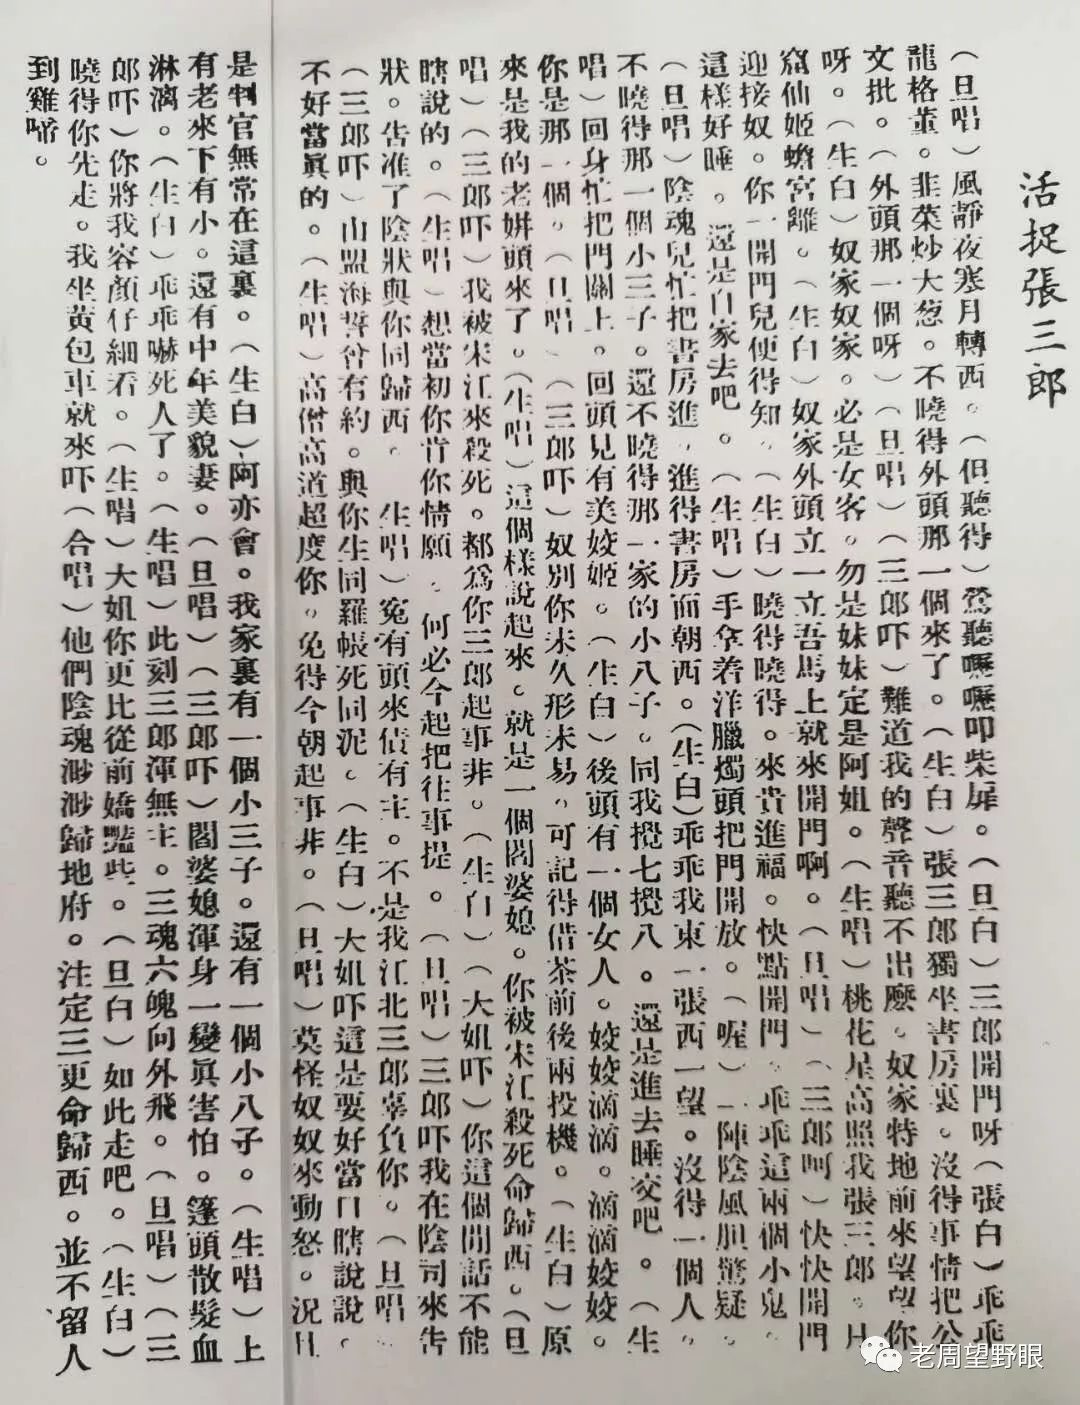 活捉張三郎
（旦唱）風靜夜寒月轉西。（但聽得）鶯聽嚦嚦叩柴扉。（旦白）三郎開門呀（張白）乖乖
龍格董。韭菜炒大葱。不曉得外頭那一個來了。（生白）張三郎獨坐書房裏。沒得事情把公
文批。（外頭那一個呀）（旦唱）（三郎吓）難道我的聲音聽不出麽。奴家特地前來望望你
呀。（生白）奴家奴家。必是女客。勿是妹妹定是阿姐。（生唱）桃花星高照我張三郎。月
窟仙姬蟾宮離。（生白）奴家外頭立一立吾馬上就來開門啊。（旦唱）（三郎呵）快快開門
迎接奴。你一開門兒便得知。（生白）曉得曉得。來貴進福。快點開門。乖乖這兩個小鬼
這樣好睡。還是自家去吧。（生唱）手拿着洋臘燭頭把門開放。（喔）一陣陰風胆驚疑。
（旦唱）陰魂兒忙把書房進。進得書房面朝西。（生白）乖乖我東一張西一望。沒得一個人。
不曉得那一個小三子。還不曉得那一家的小八子。同我攪七攪八。還是進去睡交吧。（生
唱）回身忙把門關上。回頭見有美姣姬。（生白）後頭有一個女人。姣姣滴滴。滴滴姣姣。
你是那一個。（旦唱（三郎吓）奴別你未久形未易。可記得借茶前後兩投機。（生白）原
來是我的老姘頭來了。（生唱）這個樣說起來。就是一個閻婆媳。你被宋江殺死命歸西。（旦
唱）（三郎吓）我被宋江來殺死。都爲你三郎起事非。（生白）（大姐吓）你這個閒話不能
瞎說的。（生唱）想當初你肯你情願。何必今起把往事提。（旦唱）三郎吓我在陰司來告
狀。告准了陰狀與你同歸西。生唱）冤有頭來債有主。不是我江北三郎辜負你。（旦唱
（三郎吓）山盟海誓曾有約。與你生同羅帳死同泥。（生白）大姐吓這是要好當口瞎說說。
不好當眞的。（生唱）高僧高道超度你。免得今朝起事非。（旦唱）莫怪奴奴來動怒。況且
是判官無常在這裏。（生白）阿亦會。我家裏有一個小三子。還有一個小八子。（生唱）上
有老來下有小。還有中年美貌妻。（旦唱）（三郎吓）閻婆媳渾身一變眞害怕。篷頭散髮血
淋漓。（生白）乖乖嚇死人了。（生唱）此刻三郎渾無主。三魂六魄向外飛。（旦唱）（三
郎吓）你將我容顏仔細看。（生唱）大姐你更比從前嬌豔些。（旦白）如此走吧。（生白）
曉得你先走。我坐黃包車就來吓（合唱）他們陰魂渺渺歸地府。注定三更命歸西。並不留人
到雞啼。
老周望野眼